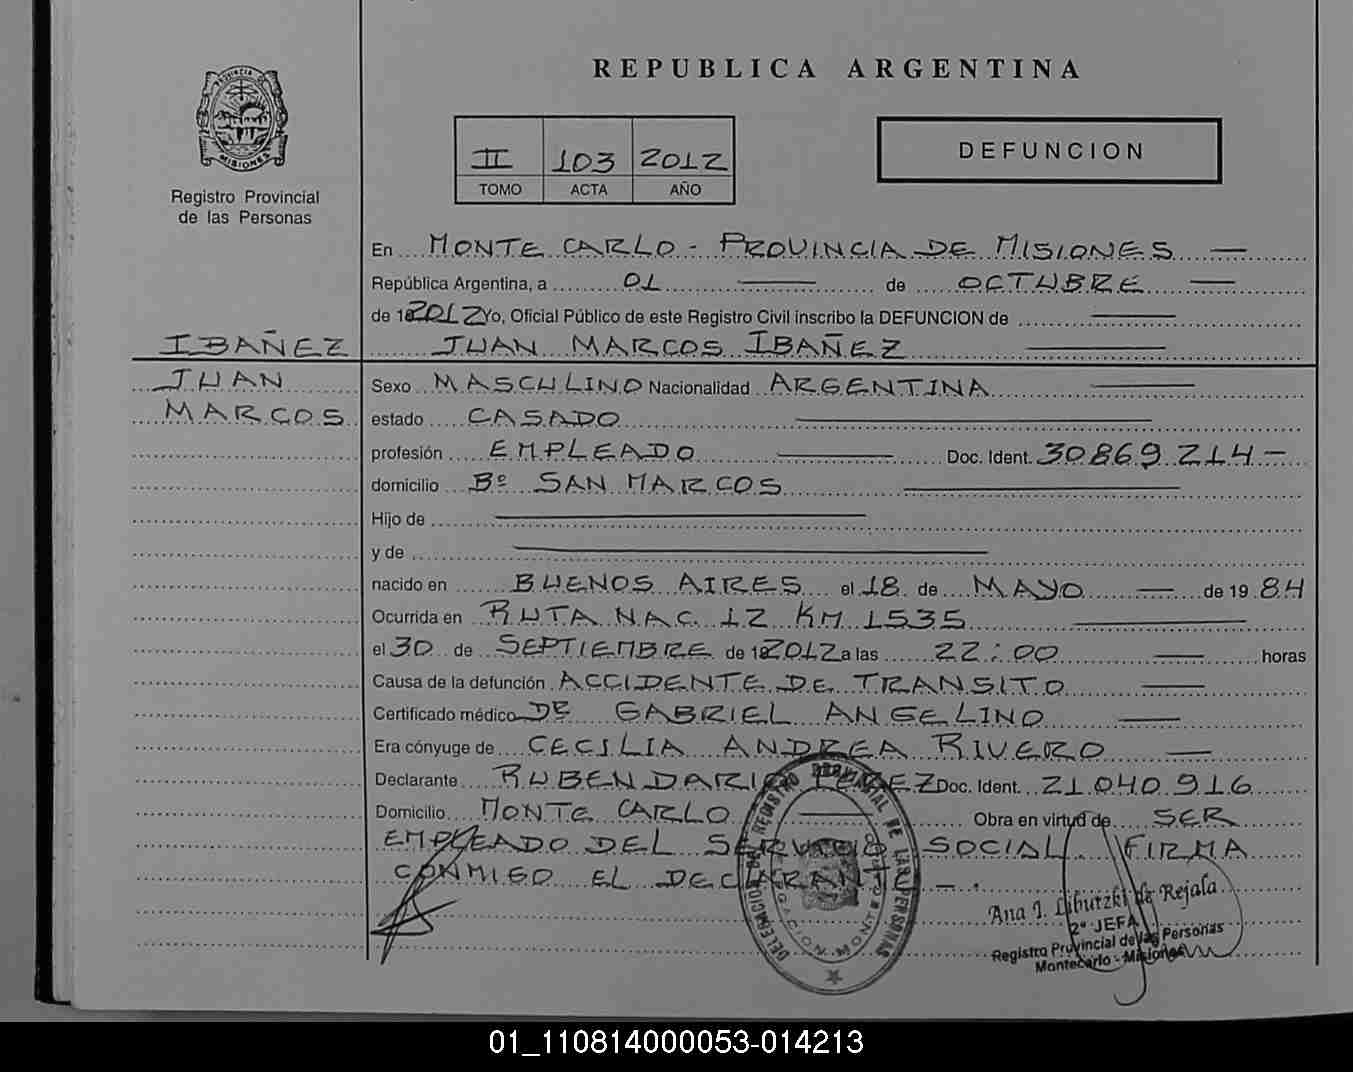 REPUBLICA ARGENTINA
PROVINCIA DE
MISIONES
Registro Provincial
de las Personas
II 103 2012
TOMO ACTA AÑO
DEFUNCION
En MONTE CARLO - PROVINCIA DE MISIONES —
República Argentina, a 01 — de OCTUBRE —
de 2012 Yo, Oficial Público de este Registro Civil inscribo la DEFUNCION de —
IBAÑEZ JUAN MARCOS IBAÑEZ —
JUAN Sexo MASCULINO Nacionalidad ARGENTINA —
MARCOS estado CASADO —
profesión EMPLEADO — Doc. Ident. 30869214 -
domicilio Bº SAN MARCOS —
Hijo de —
y de —
nacido en BUENOS AIRES el 18 de MAYO — de 1984
Ocurrida en RUTA NAC. 12 KM 1535 —
el 30 de SEPTIEMBRE de 2012 a las 22:00 — horas
Causa de la defunción ACCIDENTE DE TRANSITO —
Certificado médico Dr GABRIEL ANGELINO —
Era cónyuge de CECILIA ANDREA RIVERO —
Declarante RUBEN DARIO PEREZ Doc. Ident. 21.040.916
Domicilio MONTE CARLO — Obra en virtud de SER
EMPLEADO DEL SERVICIO SOCIAL. FIRMA
CONMIGO EL DECLARANTE - .
REGISTRO PROVINCIAL DE LAS PERSONAS
Ana I. Libutzki de Rejala
2º JEFA
Registro Provincial de las Personas
Montecarlo - Misiones
01_110814000053-014213